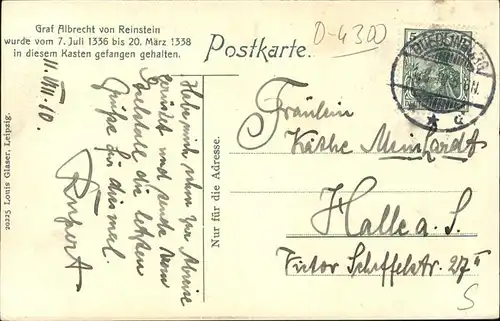 Graf Albrecht von Reinstein
wurde vom 7. Juli 1336 bis 20. März 1338
in diesem Kasten gefangen gehalten.
Postkarte.
D-4300
QUEDLINBURG
5
11. VIII. 10.
Habe mich schon zur Abreise
gerüstet und sende vom
die letzten
Grüße für diesmal.
Rupert
Nur für die Adresse.
20225 Louis Glaser, Leipzig.
Fräulein
Käthe Meinhardt
Halle a. S.
Victor Scheffelstr. 27 II
S